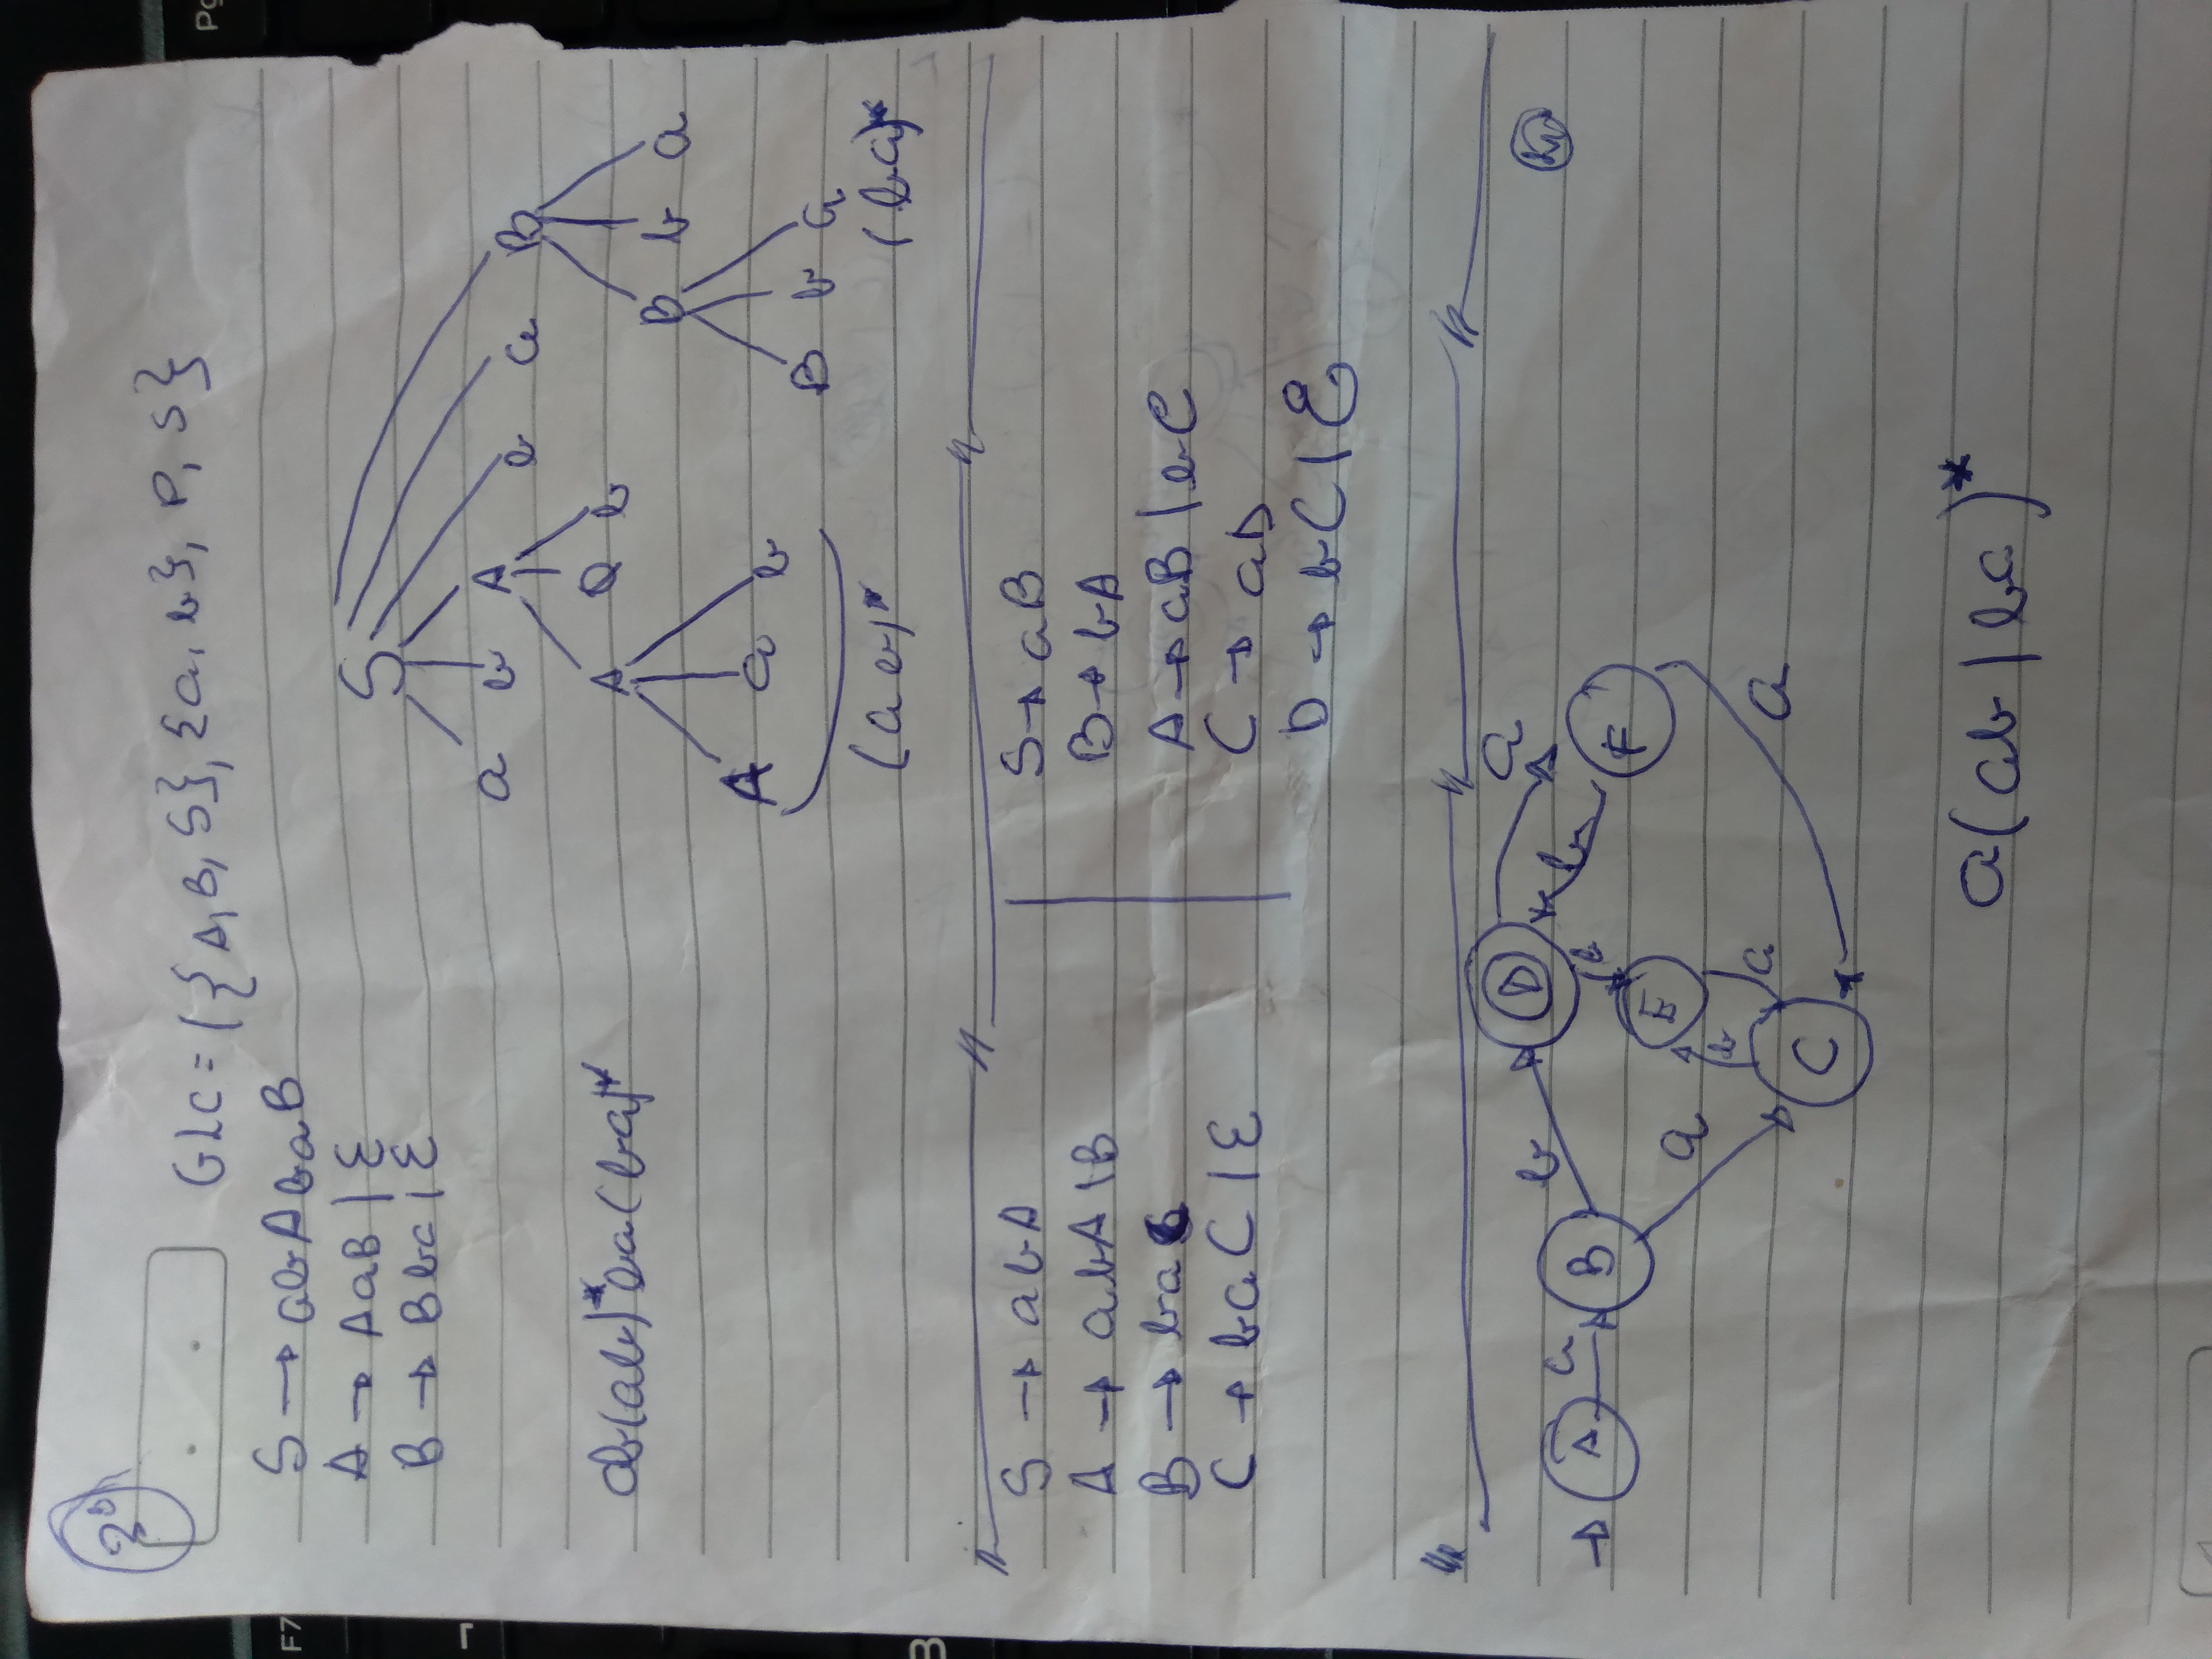 3º
GLC = ({A, B, S}, {a, b}, P, S}
S → abAbaB
A → AaB | ε
B → Bba | ε
S
a b A b a B
ab(ab)*ba(ba)*
A a b
B b a
A a b
B b a
(ab)*
(ba)*
S → abA
A → abA | B
B → baC
C → baC | ε
S → aB
B → bA
A → aB | bC
C → aD
D → bC | ε
D
a
b
A
a
B
b
b
F
E
a
b
a
a
C
a(ab | ba)*
F7
B